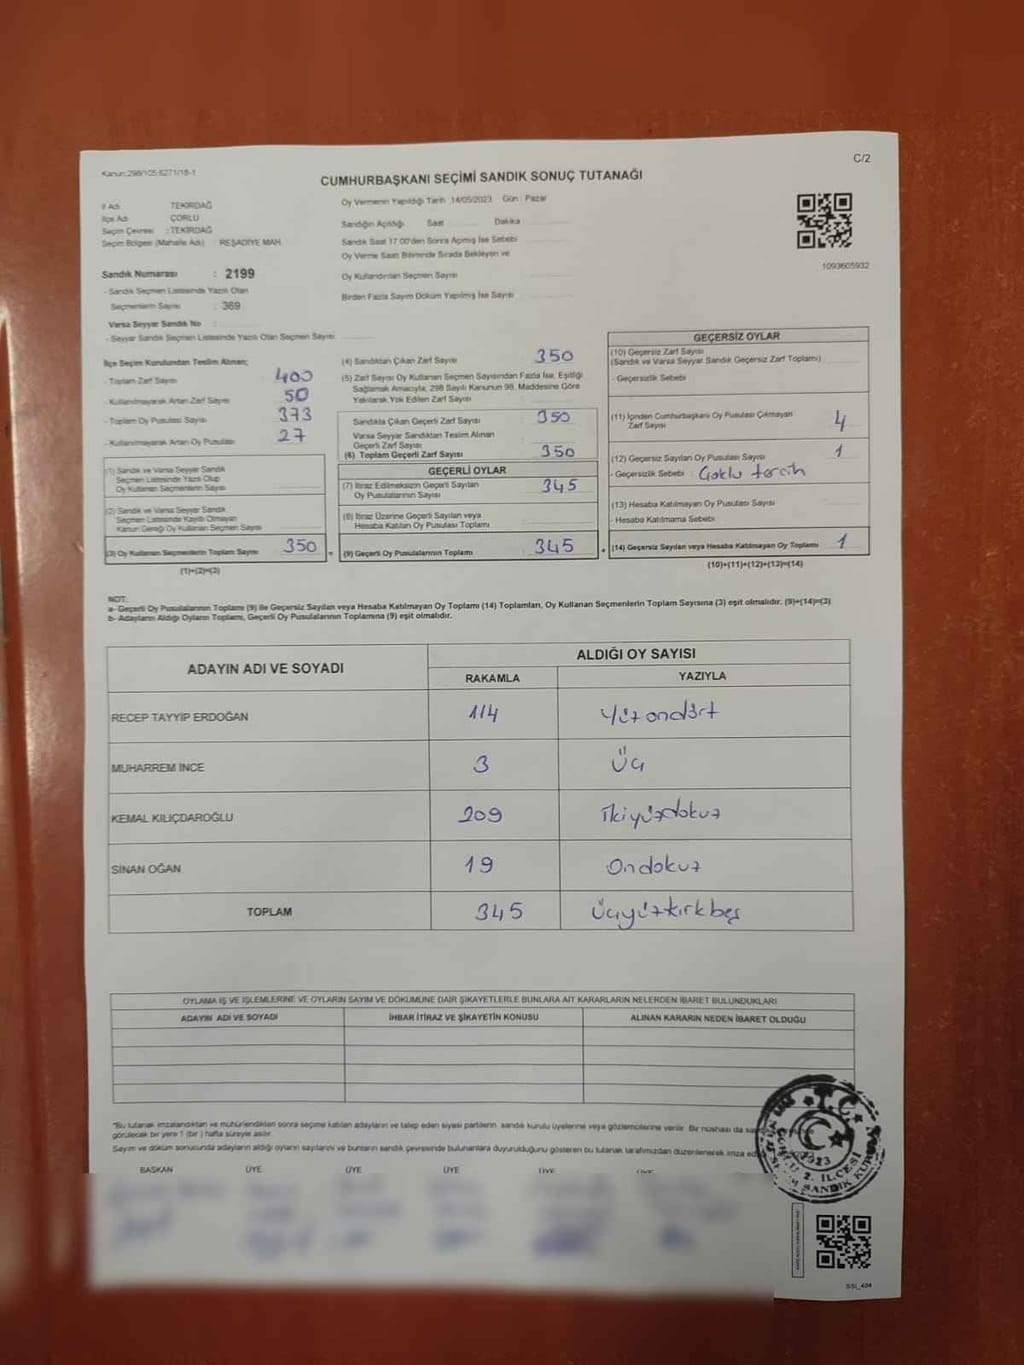 Kanun:298/105;6271/18-1
C/2
CUMHURBAŞKANI SEÇİMİ SANDIK SONUÇ TUTANAĞI
İl Adı : TEKİRDAĞ
İlçe Adı : ÇORLU
Seçim Çevresi : TEKİRDAĞ
Seçim Bölgesi (Mahalle Adı) : REŞADİYE MAH
Oy Vermenin Yapıldığı Tarih 14/05/2023 Gün : Pazar
Sandığın Açıldığı Saat Dakika
Sandık Saat 17.00'den Sonra Açılmış İse Sebebi
Oy Verme Saati Bitiminde Sırada Bekleyen ve
Oy Kullandırılan Seçmen Sayısı
Birden Fazla Sayım Döküm Yapılmış İse Sayısı
1093605932
Sandık Numarası : 2199
- Sandık Seçmen Listesinde Yazılı Olan
Seçmenlerin Sayısı : 369
Varsa Seyyar Sandık No :
- Seyyar Sandık Seçmen Listesinde Yazılı Olan Seçmen Sayısı
İlçe Seçim Kurulundan Teslim Alınan;
- Toplam Zarf Sayısı 400
- Kullanılmayarak Artan Zarf Sayısı 50
- Toplam Oy Pusulası Sayısı 373
- Kullanılmayarak Artan Oy Pusulası 27
(1) Sandık ve Varsa Seyyar Sandık
Seçmen Listesinde Yazılı Olup
Oy Kullanan Seçmenlerin Sayısı
(2) Sandık ve Varsa Seyyar Sandık
Seçmen Listesinde Kayıtlı Olmayan
Kanun Gereği Oy Kullanan Seçmen Sayısı
(3) Oy Kullanan Seçmenlerin Toplam Sayısı 350 =
(1)+(2)=(3)
(4) Sandıktan Çıkan Zarf Sayısı 350
(5) Zarf Sayısı Oy Kullanan Seçmen Sayısından Fazla İse, Eşitliği
Sağlamak Amacıyla, 298 Sayılı Kanunun 98. Maddesine Göre
Yakılarak Yok Edilen Zarf Sayısı
Sandıkta Çıkan Geçerli Zarf Sayısı 350
Varsa Seyyar Sandıktan Teslim Alınan
Geçerli Zarf Sayısı
(6) Toplam Geçerli Zarf Sayısı 350
GEÇERLİ OYLAR
(7) İtiraz Edilmeksizin Geçerli Sayılan
Oy Pusulalarının Sayısı 345
(8) İtiraz Üzerine Geçerli Sayılan veya
Hesaba Katılan Oy Pusulası Toplamı
(9) Geçerli Oy Pusulalarının Toplamı 345 +
GEÇERSİZ OYLAR
(10) Geçersiz Zarf Sayısı
(Sandık ve Varsa Seyyar Sandık Geçersiz Zarf Toplamı)
- Geçersizlik Sebebi
(11) İçinden Cumhurbaşkanı Oy Pusulası Çıkmayan
Zarf Sayısı 4
(12) Geçersiz Sayılan Oy Pusulası Sayısı 1
- Geçersizlik Sebebi : Çoklu tercih
(13) Hesaba Katılmayan Oy Pusulası Sayısı
- Hesaba Katılmama Sebebi
(14) Geçersiz Sayılan veya Hesaba Katılmayan Oy Toplamı 1
(10)+(11)+(12)+(13)=(14)
NOT:
a- Geçerli Oy Pusulalarının Toplamı (9) ile Geçersiz Sayılan veya Hesaba Katılmayan Oy Toplamı (14) Toplamları, Oy Kullanan Seçmenlerin Toplam Sayısına (3) eşit olmalıdır. (9)+(14)=(3)
b- Adayların Aldığı Oyların Toplamı, Geçerli Oy Pusulalarının Toplamına (9) eşit olmalıdır.
ADAYIN ADI VE SOYADI
ALDIĞI OY SAYISI
RAKAMLA YAZIYLA
RECEP TAYYİP ERDOĞAN 114 Yüzondört
MUHARREM İNCE 3 Üç
KEMAL KILIÇDAROĞLU 209 İkiyüzdokuz
SİNAN OĞAN 19 Ondokuz
TOPLAM 345 Üçyüzkırkbeş
OYLAMA İŞ VE İŞLEMLERİNE VE OYLARIN SAYIM VE DÖKÜMÜNE DAİR ŞİKAYETLERLE BUNLARA AİT KARARLARIN NELERDEN İBARET BULUNDUKLARI
ADAYIN ADI VE SOYADI İHBAR İTİRAZ VE ŞİKAYETİN KONUSU ALINAN KARARIN NEDEN İBARET OLDUĞU
*Bu tutanak imzalandıktan ve mühürlendikten sonra seçime katılan adayların ve talep eden siyasi partilerin sandık kurulu üyelerine veya gözlemcilerine verilir. Bir nüshası da
görülecek bir yere 1 (bir) hafta süreyle asılır.
Sayım ve döküm sonucunda adayların aldığı oyların sayılarını ve bunların sandık çevresinde bulunanlara duyurulduğunu gösteren bu tutanak tarafımızdan düzenlenerek imza
BAŞKAN ÜYE ÜYE ÜYE ÜYE ÜYE
T.C.
1923
2. İLÇESİ
SANDIK
SSİ_404